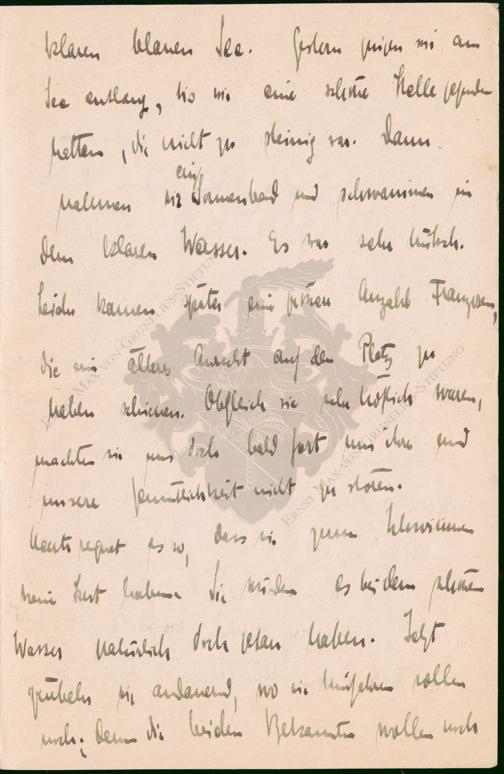 klaren blauen See. Gestern gingen wir am
See entlang, bis wir eine schöne Stelle gefunden
hatten, die nicht zu steinig war. Dann
nahmen wir ein Sonnenbad und schwammen in
dem klaren Wasser. Es war sehr hübsch.
Leider kamen später eine grössere Anzahl Franzosen,
die ein älteres Anrecht auf den Platz zu
haben schienen. Obgleich sie sehr höflich waren,
machten wir uns doch bald fort um ihre und
unsere Gemütlichkeit nicht zu stören.
Heute regnet es so, dass wir zum Schwimmen
keine Lust haben. Sie würden es bei dem schönen
Wasser natürlich doch getan haben. Jetzt
grübeln wir andauernd, wo wir hinfahren sollen
noch; denn die beiden Bekannten wollen noch
ERNST MAX VON GRUNELIUS-STIFTUNG
ERNST MAX VON GRUNELIUS-STIFTUNG